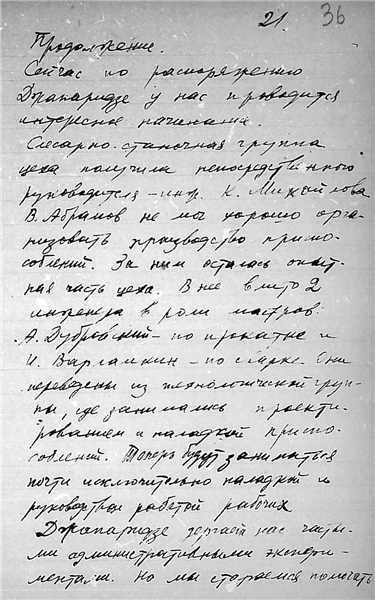 21.
36
Продолжение.
Сейчас по распоряжению
Джапаридзе у нас проводится
интересное начинание.
Слесарно-станочная группа
цеха получила непосредственного
руководителя - инж. К. Михайлова
В. Абрамов не мог хорошо орга-
низовать производство приспо-
соблений. За ним осталась опыт-
ная часть цеха. В нее влито 2
инженера в роли мастров:
А. Дубровский - по прокатке и
И. Варламкин - по сварке. Они
переведены из технологической груп-
пы, где занимались проекти-
рованием и наладкой приспо-
соблений. Теперь будут заниматься
почти исключительно наладкой и
руководством работой рабочих.
Джапаридзе дергает нас часты-
ми административными экспери-
ментами. Но мы стараемся помогать